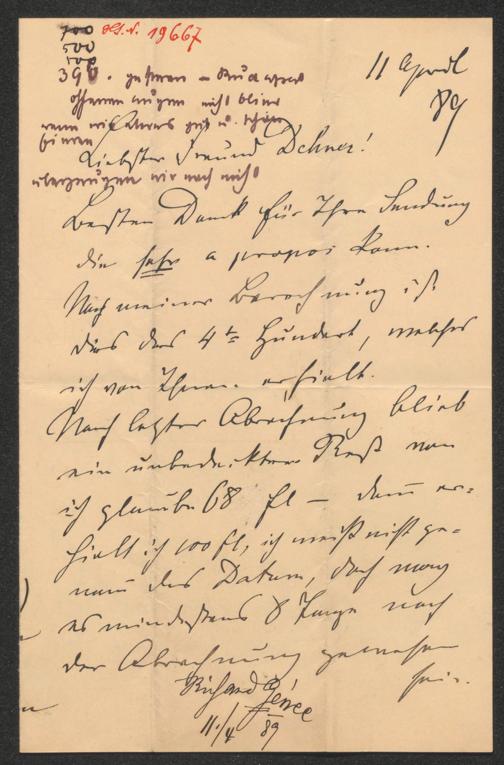 700
500
500
H.I.N. 19667
390.
offenen Augen nicht blind
11 April
89
Liebster Freund Dehner!
überzeugen wir noch nicht
Besten Dank für Ihre Sendung
die sehr a propos kam.
Nach meiner Berechnung ist
dies das 4te Hundert, welches
ich von Ihnen erhielt.
Nach letzter Abrechnung blieb
ein unbedeckter Rest von
ich glaube 68 fl – dann er-
hielt ich 100 fl, ich weiß nicht ge-
nau das Datum, doch mag
es mindestens 8 Tage nach
der Abrechnung gewesen
sein.
Richard Genée
11./4 89